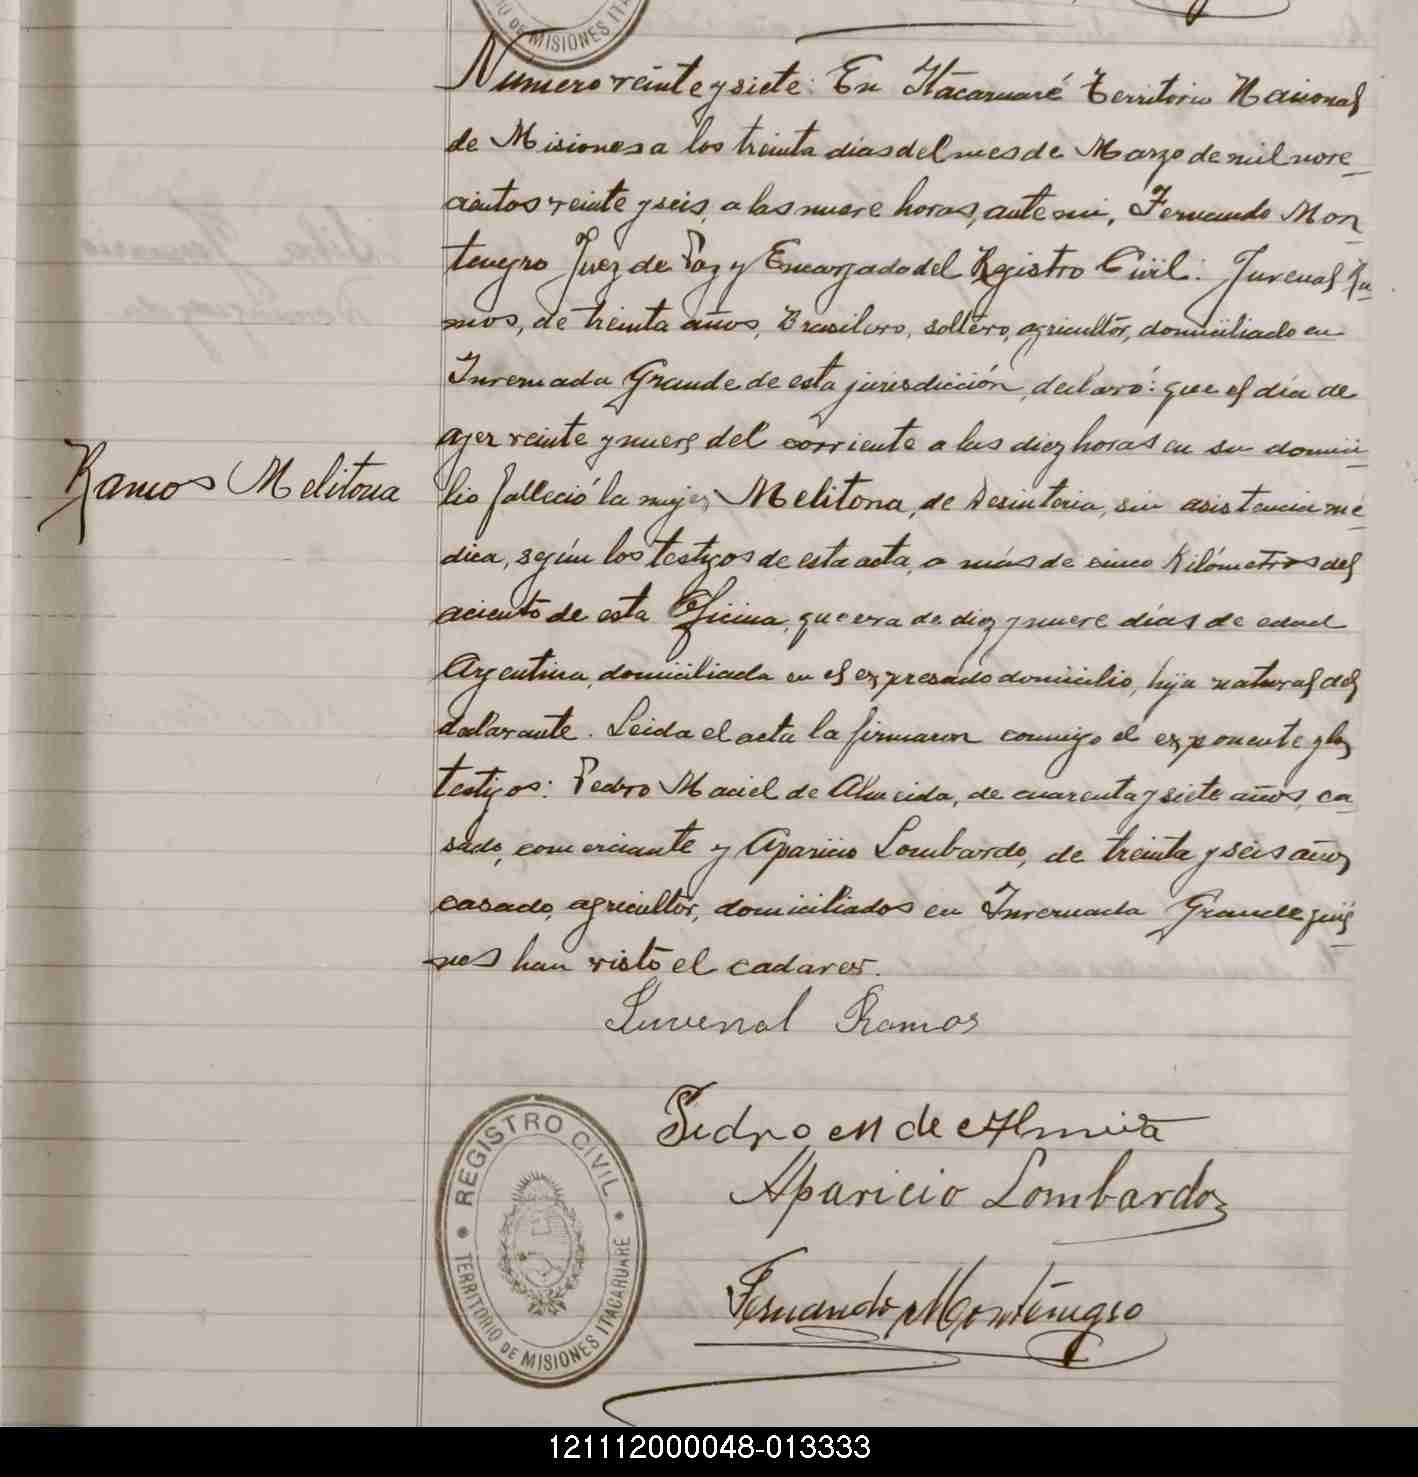 DE MISIONES ITA
Numero veinte y siete: En Itacaruaré Territorio Nacional
de Misiones a los treinta dias del mes de Marzo de mil nove-
cientos veinte y seis, a las nueve horas, ante mi, Fernando Mon-
tenegro Juez de Paz y Encargado del Registro Civil: Juvenal Ra-
mos, de treinta años, Brasilero, soltero, agricultor, domiciliado en
Invernada Grande de esta jurisdicción, declaró: que el día de
ayer veinte y nueve del corriente a las diez horas en su domici-
Ramos Melitona
lio falleció la mujer Melitona, de Desinteria, sin asistencia mé-
dica, según los testigos de esta acta, a más de cinco Kilómetros del
aciento de esta Oficina, que era de diez y nueve días de edad
Argentina, domiciliada en el expresado domicilio, hija natural del
declarante. Leida el acta la firmaron conmigo el exponente y los
testigos: Pedro Maciel de Almeida, de cuarenta y siete años, ca-
sado, comerciante y Aparicio Lombardo, de treinta y seis años
casado, agricultor, domiciliados en Invernada Grande quié-
nes han visto el cadaver.
Juvenal Ramos
Pedro M de Almeida
Aparicio Lombardo
Fernando Montenegro
REGISTRO CIVIL
TERRITORIO DE MISIONES ITACARUARE
121112000048-013333